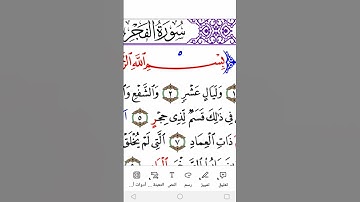 سُورَةُ الْفَجْرِ
بِسْمِ اللَّهِ
١ وَلَيَالٍ عَشْرٍ ٢ وَالشَّفْعِ
فِي ذَٰلِكَ قَسَمٌ لِّذِي حِجْرٍ ٥
ذَاتِ الْعِمَادِ ٧ الَّتِي لَمْ يُخْلَقْ
تعليق تمييز رسم النص التعبئة و... أدوات أ...